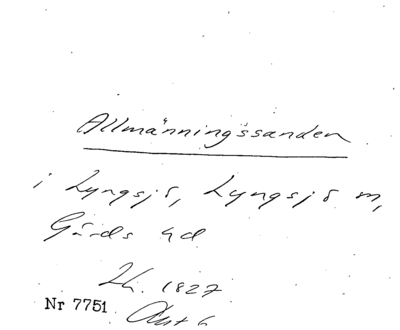 Allmänningssanden
i Lyngsjö, Lyngsjö m,
Gärds hd
Lh. 1827
Nr 7751 Akt 6